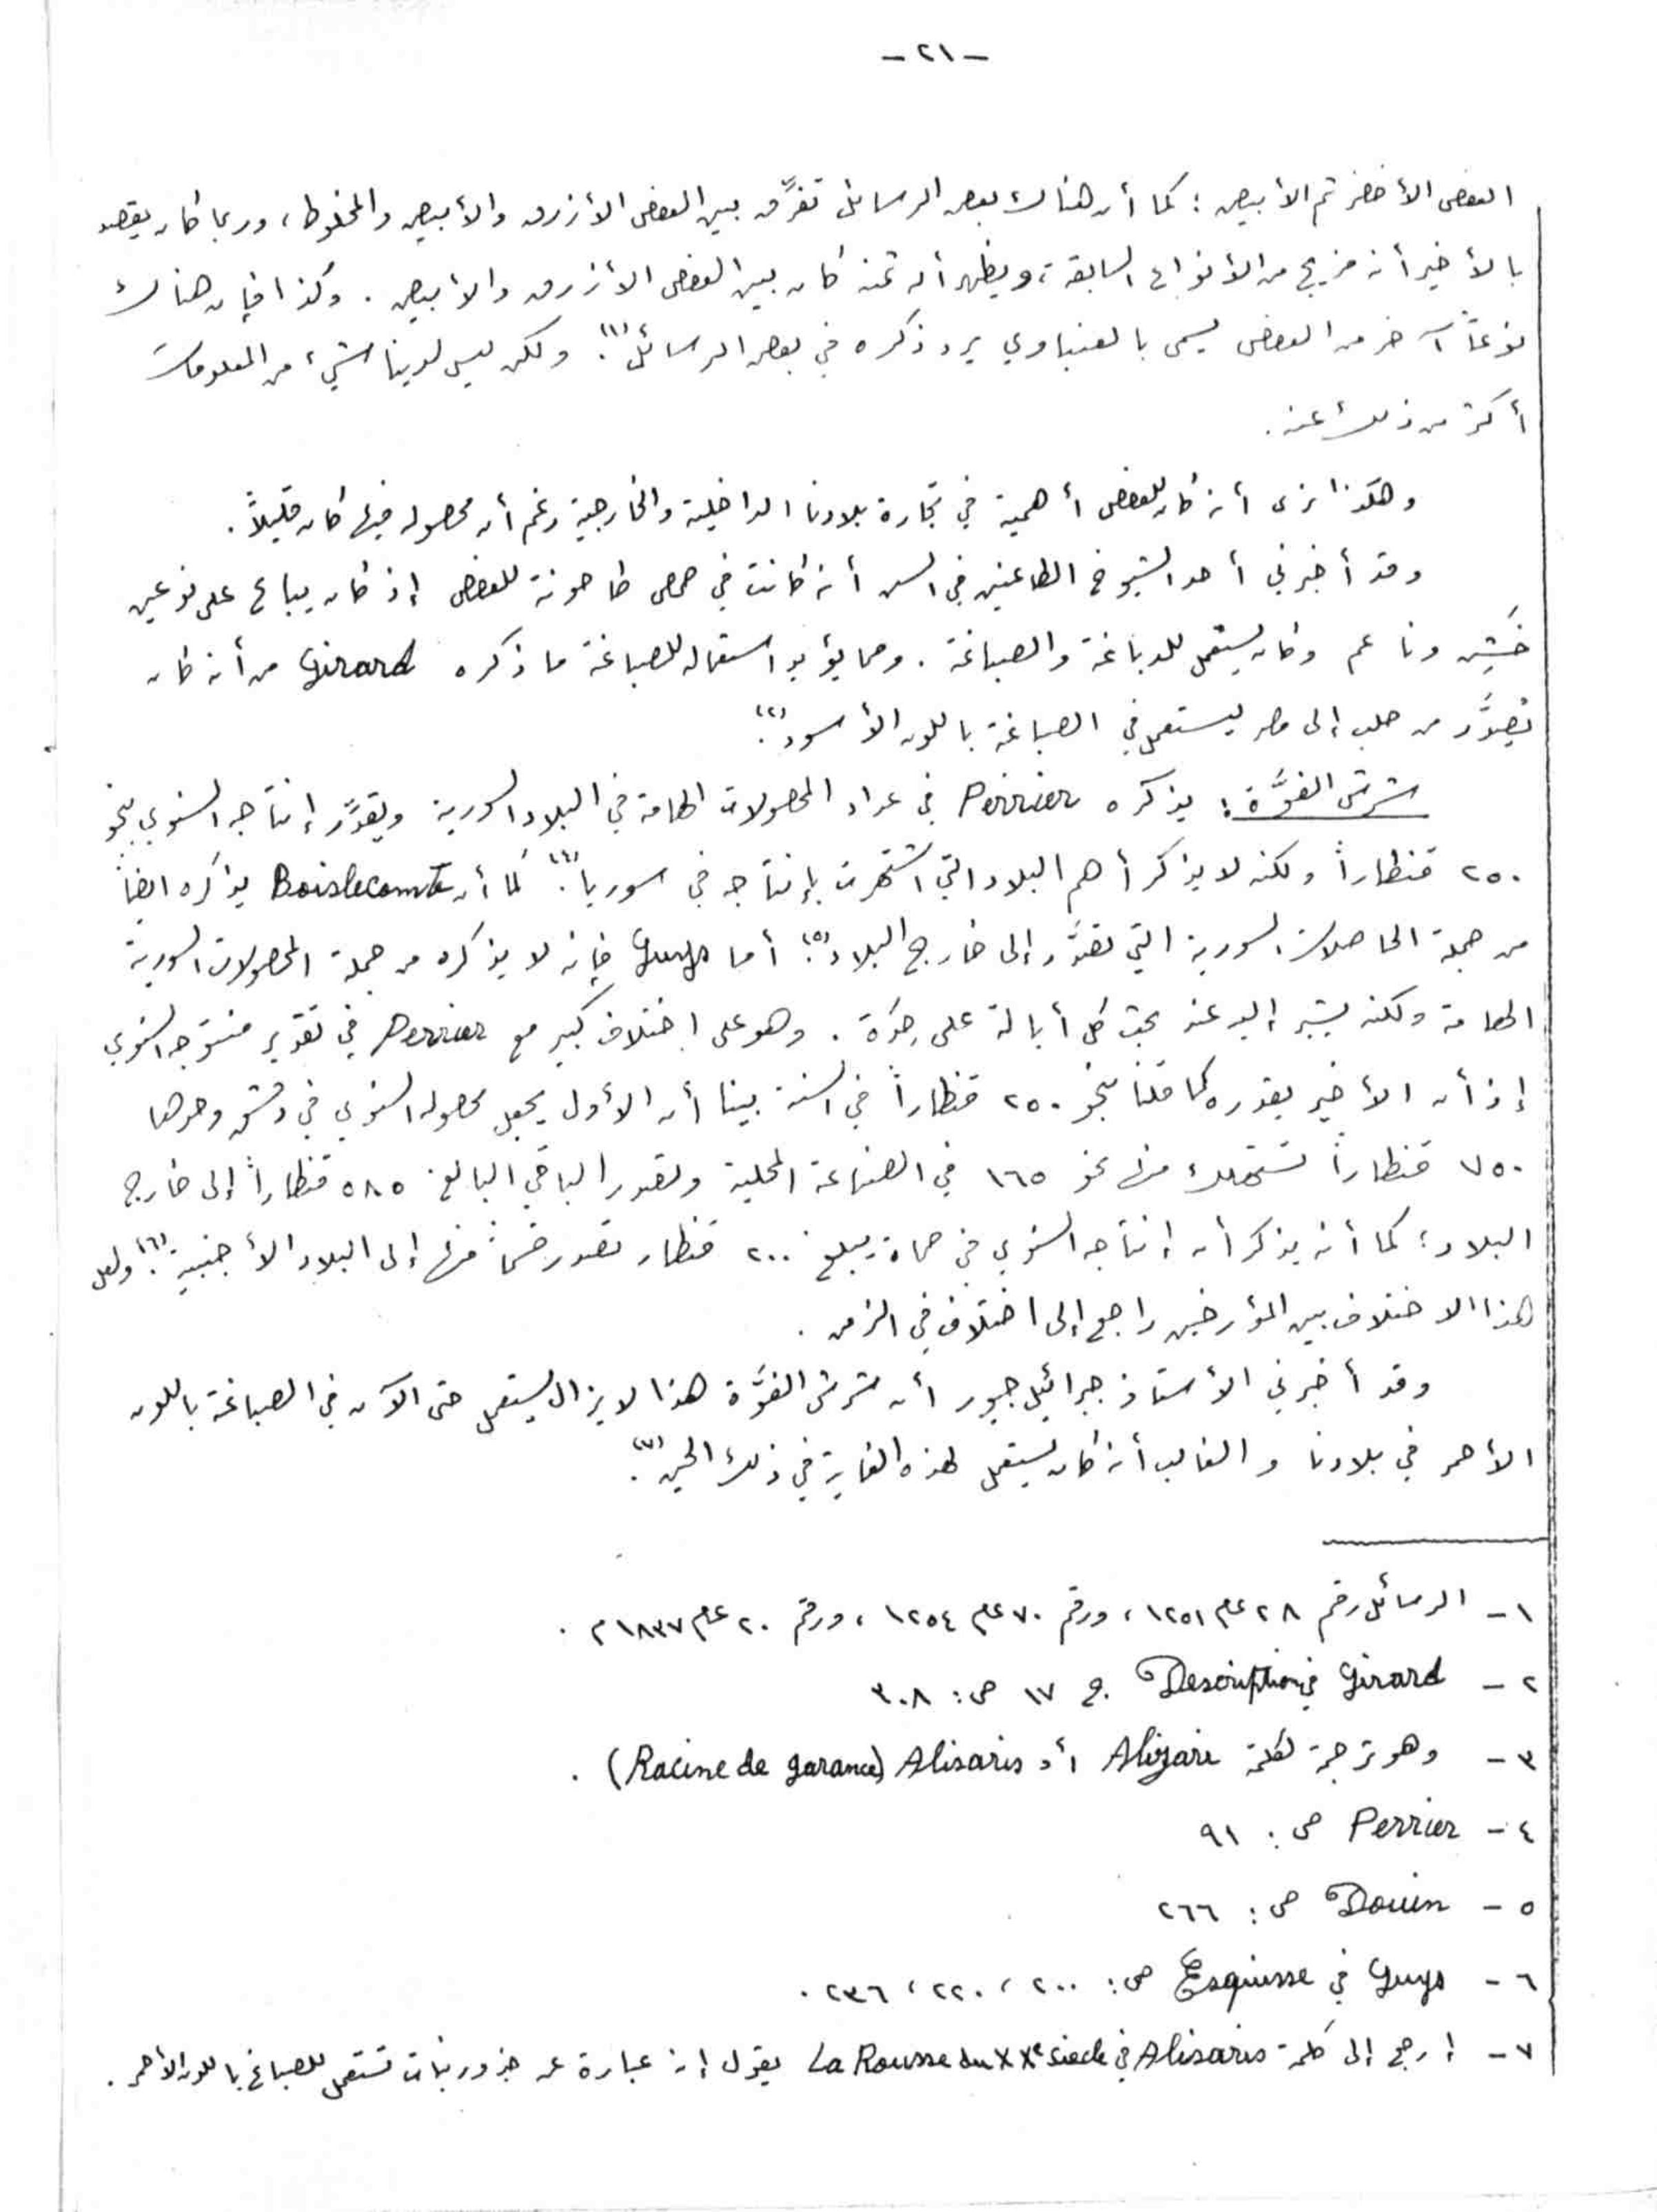 -٢١-
العفص الأخضر ثم الأبيض؛ كما أن هناك بعض الرسائل تفرّق بين العفص الأزرق والأبيض والمخلوط، وربما كان يقصد
بالأخير أنه مزيج من الأنواع السابقة، ويظهر أن ثمنه كان بين العفص الأزرق والأبيض. وكذا فإن هناك
نوعاً آخر من العفص يسمى بالعنباوي يرد ذكره في بعض الرسائل(١). ولكن ليس لدينا شيء من المعلومات
أكثر من ذلك عنه.
وهكذا نرى أنه كان للعفص أهمية في تجارة بلادنا الداخلية والخارجية رغم أن محصوله فيها كان قليلاً.
وقد أخبرني أحد الشيوخ الطاعنين في السن أنه كانت في حمص طاحونة للعفص إذ كان يباع على نوعين
خَشِن وناعم وكان يستعمل للدباغة والصباغة. ومما يؤيد استعماله للصباغة ما ذكره Girard من أنه كان
يُصدَّر من حلب إلى مصر ليستعمل في الصباغة باللون الأسود(٢).
شرش الفوَّة: يذكره Perrier في عداد المحصولات الهامة في البلاد السورية ويقدِّر إنتاجه السنوي بنحو
٢٥٠ قنطاراً ولكنه لا يذكر أهم البلاد التي اشتهرت بإنتاجه في سوريا(٤). كما أن Boislecomte يذكره ايضاً
من جملة الحاصلات السورية التي تصدَّر إلى خارج البلاد(٥)؛ أما Guys فإنه لا يذكره من جملة المحصولات السورية
الهامة ولكنه يشير إليه عند بحث كل أيالة على حِدَة. وهو على اختلاف كبير مع Perrier في تقدير منتوجه السنوي
إذ أن الأخير يقدره كما قلنا بنحو ٢٥٠ قنطاراً في السنة بينا أن الأول يجعل محصوله السنوي في دمشق وحدها
٧٥٠ قنطاراً تستهلك منها نحو ١٦٥ في الصناعة المحلية ويصدر الباقي البالغ ٥٨٥ قنطاراً إلى خارج
البلاد؛ كما أنه يذكر أن إنتاجه السنوي في حماة يبلغ ٢٠٠ قنطار تصدر قسماً منها إلى البلاد الأجنبية(٦). ولعل
هذا الاختلاف بين المؤرخين راجع إلى اختلاف في الزمن.
وقد أخبرني الأستاذ جبرائيل جبور أن شرش الفوَّة هذا لا يزال يستعمل حتى الآن في الصباغة باللون
الأحمر في بلادنا والغالب أنه كان يستعمل لهذه الغاية في ذلك الحين(٣).
١- الرسائل رقم ٢٨ عام ١٢٥١، ورقم ٧٠ عام ١٢٥٤، ورقم ٢٠ عام ١٨٣٧م.
٢- Girard في Description ج ١٧ ص: ٣٠٨
٣- وهو ترجمة لكلمة Alizari أو Alisaris (Racine de garance).
٤- Perrier ص: ٩١
٥- Douin ص: ٢٦٦
٦- Guys في Esquisse ص: ٢٠٠، ٢٢٠، ٢٣٦.
٧- إرجع إلى كلمة Alisaris في La Rousse du XXe siècle يقول إنه عبارة عن جذور نبات تستعمل للصباغ باللون الأحمر.